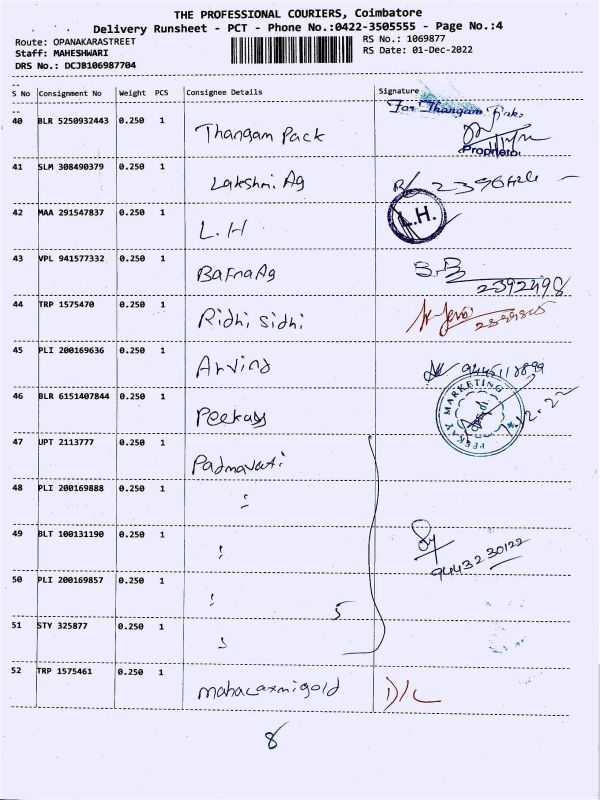 THE PROFESSIONAL COURIERS, Coimbatore
Delivery Runsheet - PCT - Phone No.:0422-3505555 - Page No.:4
Route: OPANAKARASTREET
RS No.: 1069877
Staff: MAHESHWARI
RS Date: 01-Dec-2022
DRS No.: DCJB106987704
S No Consignment No Weight PCS Consignee Details Signature
For Thangam Pack
40 BLR 5250932443 0.250 1 Thangam Pack
Proprietor
41 SLM 308490379 0.250 1 Lakshmi Ag
42 MAA 291547837 0.250 1 L.H L.H.
43 VPL 941577332 0.250 1 Bafna Ag S.B 2392498
44 TRP 1575470 0.250 1 Ridhi Sidhi
45 PLI 200169636 0.250 1 Arvind
46 BLR 6151407844 0.250 1 Peekay PEEKAY MARKETING 1.12.22
47 UPT 2113777 0.250 1 Padmavati
48 PLI 200169888 0.250 1
49 BLT 100131190 0.250 1 9443230122
50 PLI 200169857 0.250 1
5
51 STY 325877 0.250 1
52 TRP 1575461 0.250 1 mahalaxmigold D/L
8